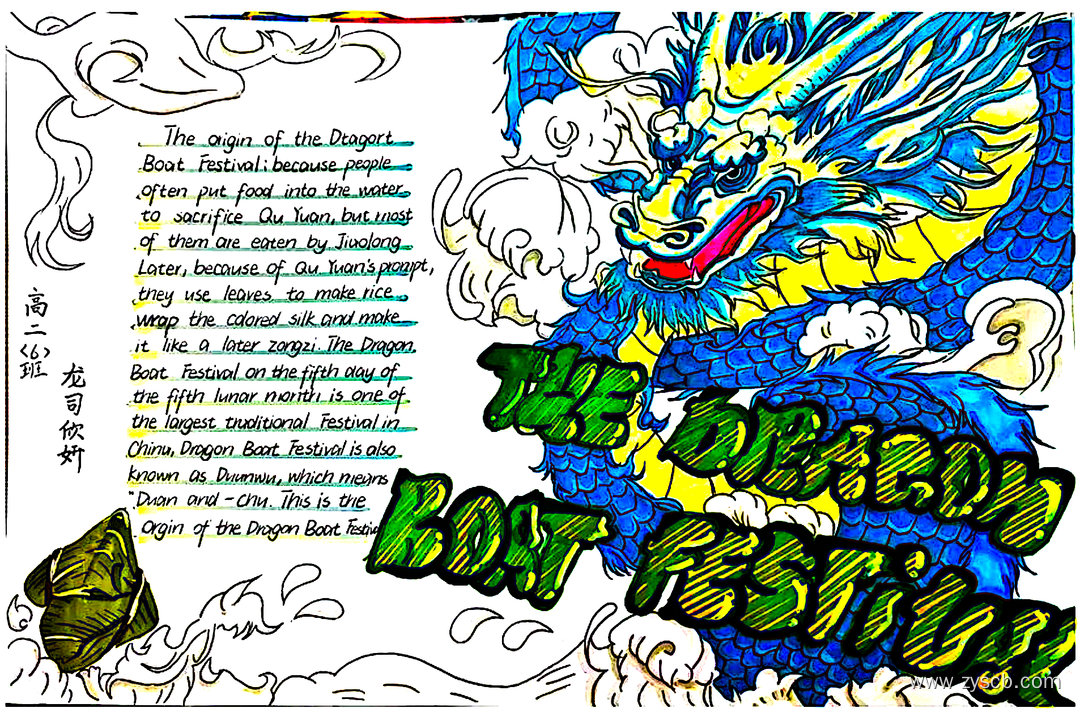 The origin of the Dtagort
Boat Festival: because people
often put food into the water
to sacrifice Qu Yuan, but most
of them are eaten by Jiuolong
Later, because of Qu Yuan's prompt,
they use leaves to make rice
wrap the colored silk and make
it like a later zongzi. The Dragon
Boat Festival on the fifth day of
the fifth lunar month is one of
the largest traditional Festival in
China, Dragon Boat Festival is also
known as Duunwu, which means
"Duan and-chu. This is the
orgin of the Dragon Boat Festival
高二
<6>
班
龙司欣妍
THE DRAGON
BOAT FESTIVAL
www.zyscb.com